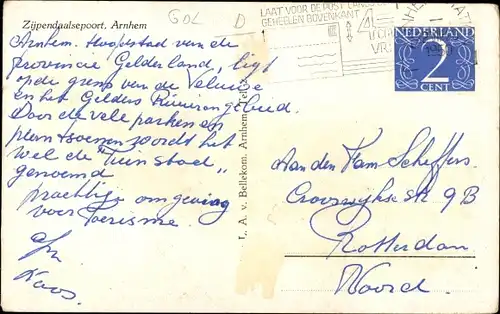 Zijpendaalsepoort, Arnhem
GDL D
LAAT VOOR DE POST LANGS DE
GEHELEN BOVENKANT
NEDERLAND
2
CENT
Arnhem. Hoofdstad van de
provincie Gelderland, ligt
op de grens van de Veluwe
en het Gelders Rivierengebied.
Door de vele parken en
plantsoenen wordt het
wel de "Tuinstad"
genoemd
prachtige omgeving
voor Toerisme.
Koos.
L. A. v. Bellekom. Arnhem. Tel.
Aan den Fam. Scheffers.
Crooswijksestr 9B
Rotterdam
Noord.